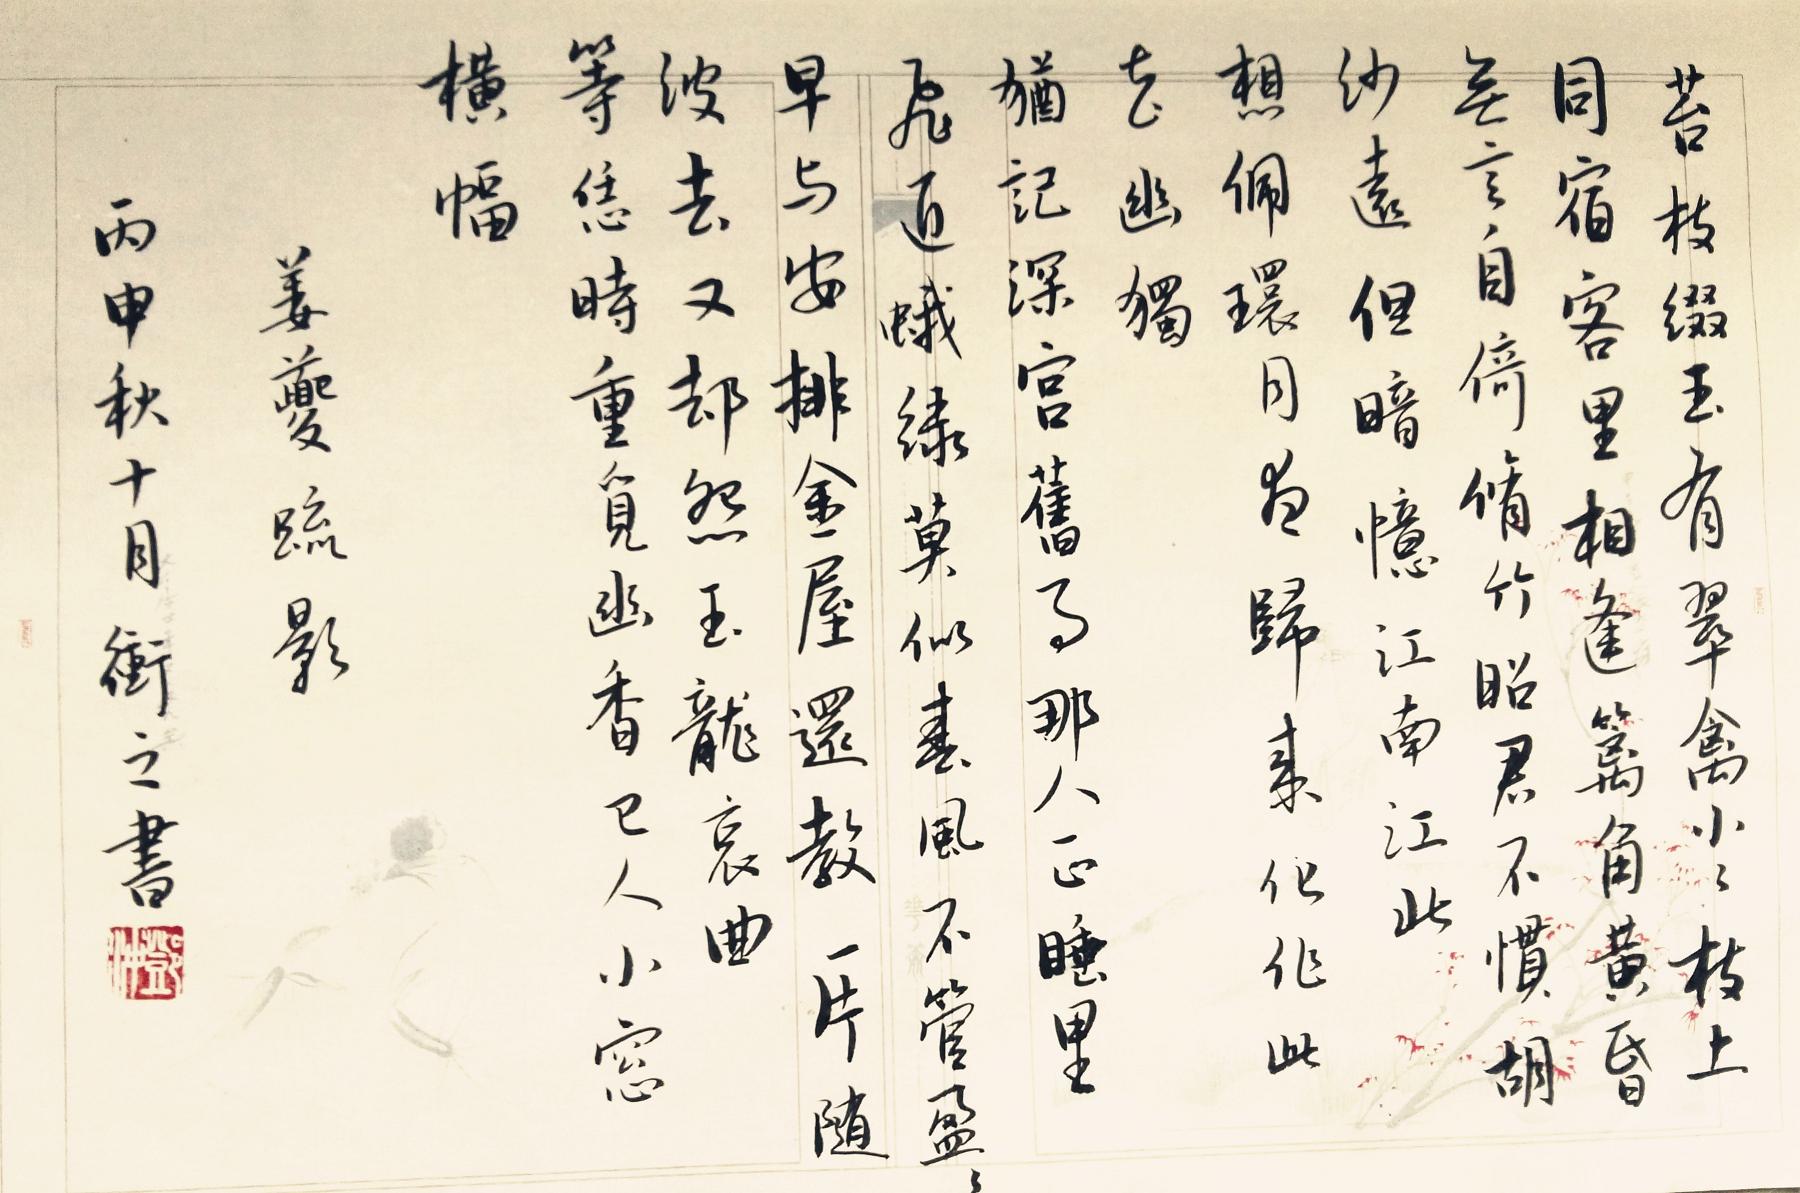 苔枝綴玉有翠禽小〻枝上
同宿客里相逢篱角黄昏
無言自倚脩竹昭君不慣胡
沙遠但暗憶江南江北
想佩環月夜歸來化作此
花幽獨
猶記深宫舊事那人正睡里
飛近蛾緑莫似春風不管盈〻
早与安排金屋還教一片随
波去又却怨玉龍哀曲
等恁時重覓幽香已入小窓
橫幅
姜夔疏影
丙申秋十月衛之書